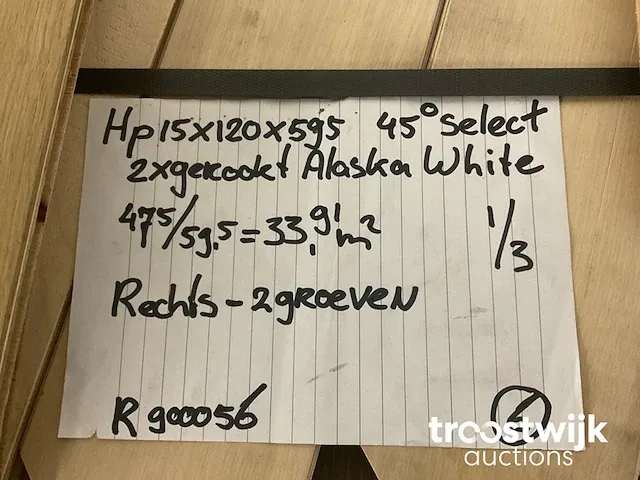 Hp 15x120x595 45° select
2xgerookt Alaska White
475/59.5 = 33,91 m² 1/3
Rechts - 2 groeven
R 900056
troostwijk
auctions